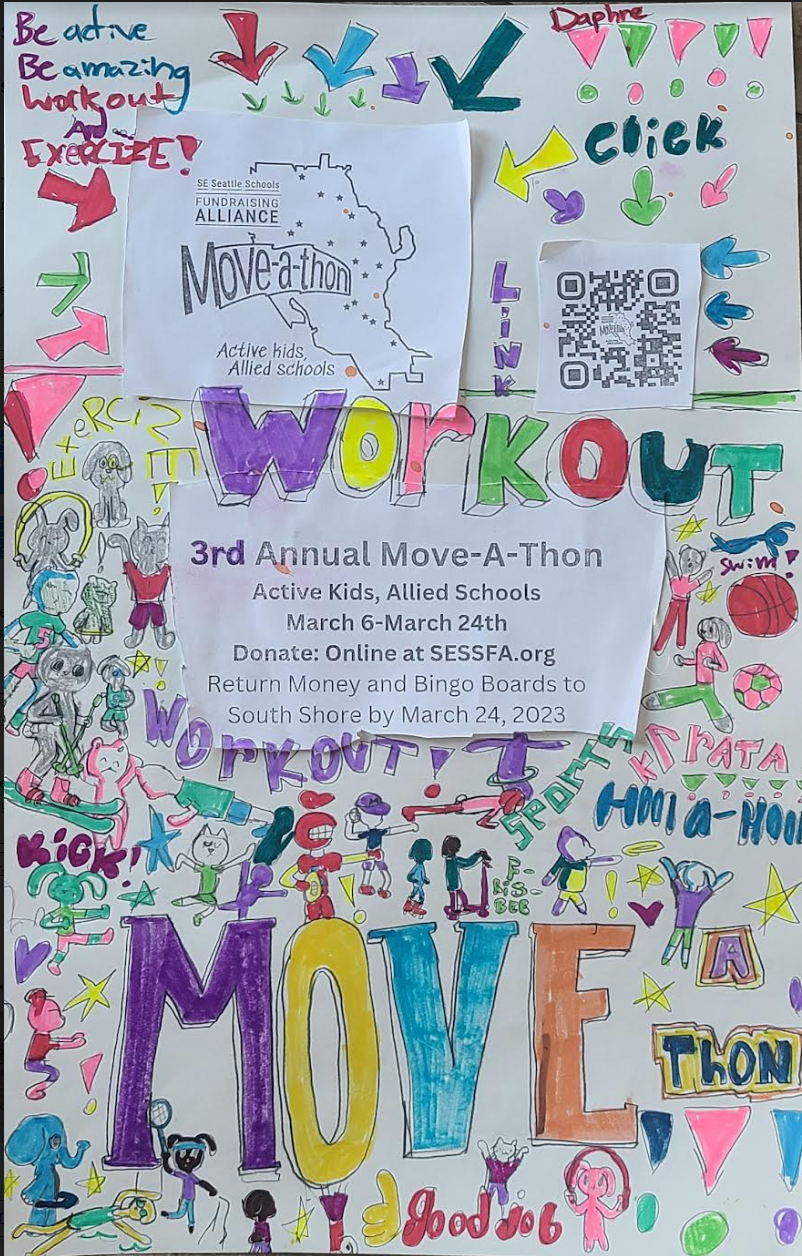 Be active
Be amazing
Workout
And...
EXERCIZE!
Daphne
CLICK
SE Seattle Schools
FUNDRAISING
ALLIANCE
Move-a-thon
Active kids,
Allied schools
LiNK
EXeRCIZE!
WORKOUT
3rd Annual Move-A-Thon
Active Kids, Allied Schools
March 6-March 24th
Donate: Online at SESSFA.org
Return Money and Bingo Boards to
South Shore by March 24, 2023
Swim!
5
WORKOUT!
SPORTS
KICK!
F-
RiS-
BEE
MOVE
A
ThON
good job